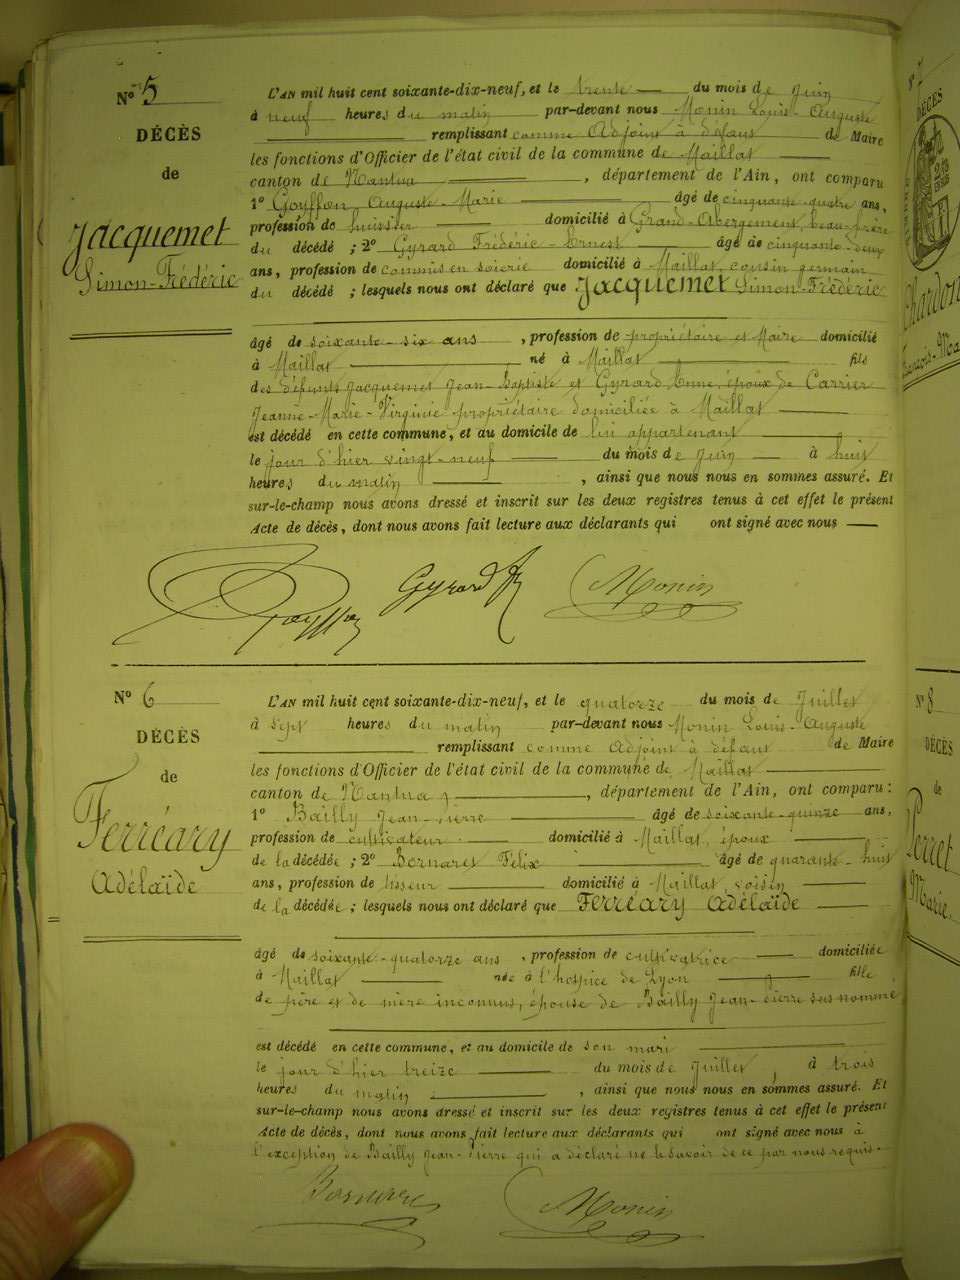 N° 5
DÉCÈS
de
Jacquemet
Simon-Frédéric
L'AN mil huit cent soixante-dix-neuf, et le trente du mois de Juin
à neuf heures du matin par-devant nous Monin Louis-Auguste
remplissant comme Adjoint à défaut de Maire
les fonctions d'Officier de l'état civil de la commune de Maillat
canton de Nantua, département de l'Ain, ont comparu
1° Gouffon Auguste-Marie âgé de cinquante-quatre ans,
profession de huissier domicilié à Grand-Abergement, beau-frère
du décédé ; 2° Gyrard Frédéric-Ernest âgé de cinquante-deux
ans, profession de commis en soierie domicilié à Maillat, cousin germain
du décédé ; lesquels nous ont déclaré que Jacquemet Simon-Frédéric
âgé de soixante-six ans, profession de propriétaire et Maire domicilié
à Maillat né à Maillat fils
des défunts Jacquemet Jean-Baptiste et Gyrard Anne, époux de Carrier
Jeanne-Marie-Virginie propriétaire domiciliée à Maillat
est décédé en cette commune, et au domicile de lui appartenant
le jour d'hier vingt-neuf du mois de Juin à huit
heures du matin, ainsi que nous nous en sommes assuré. Et
sur-le-champ nous avons dressé et inscrit sur les deux registres tenus à cet effet le présent
Acte de décès, dont nous avons fait lecture aux déclarants qui ont signé avec nous
Gouffon Gyrard Monin
N° 6
DÉCÈS
de
Ferréary
Adélaïde
L'AN mil huit cent soixante-dix-neuf, et le quatorze du mois de Juillet
à sept heures du matin par-devant nous Monin Louis-Auguste
remplissant comme Adjoint à défaut de Maire
les fonctions d'Officier de l'état civil de la commune de Maillat
canton de Nantua, département de l'Ain, ont comparu :
1° Bailly Jean-Pierre âgé de soixante-quinze ans,
profession de cultivateur domicilié à Maillat, époux
de la décédée ; 2° Bornarel Félix âgé de quarante-huit
ans, profession de tisseur domicilié à Maillat, voisin
de la décédée ; lesquels nous ont déclaré que Ferréary Adélaïde
âgé de soixante-quatorze ans, profession de cultivatrice domiciliée
à Maillat née à l'hospice de Lyon fille
de père et de mère inconnus, épouse de Bailly Jean-Pierre susnommé
est décédé en cette commune, et au domicile de son mari
le jour d'hier treize du mois de Juillet, à trois
heures du matin, ainsi que nous nous en sommes assuré. Et
sur-le-champ nous avons dressé et inscrit sur les deux registres tenus à cet effet le présent
Acte de décès, dont nous avons fait lecture aux déclarants qui ont signé avec nous à
l'exception de Bailly Jean-Pierre qui a déclaré ne le savoir de ce par nous requis.
Monin
DÉCÈS
Chardon
N° 8
DÉCÈS
de
Perret
Marie